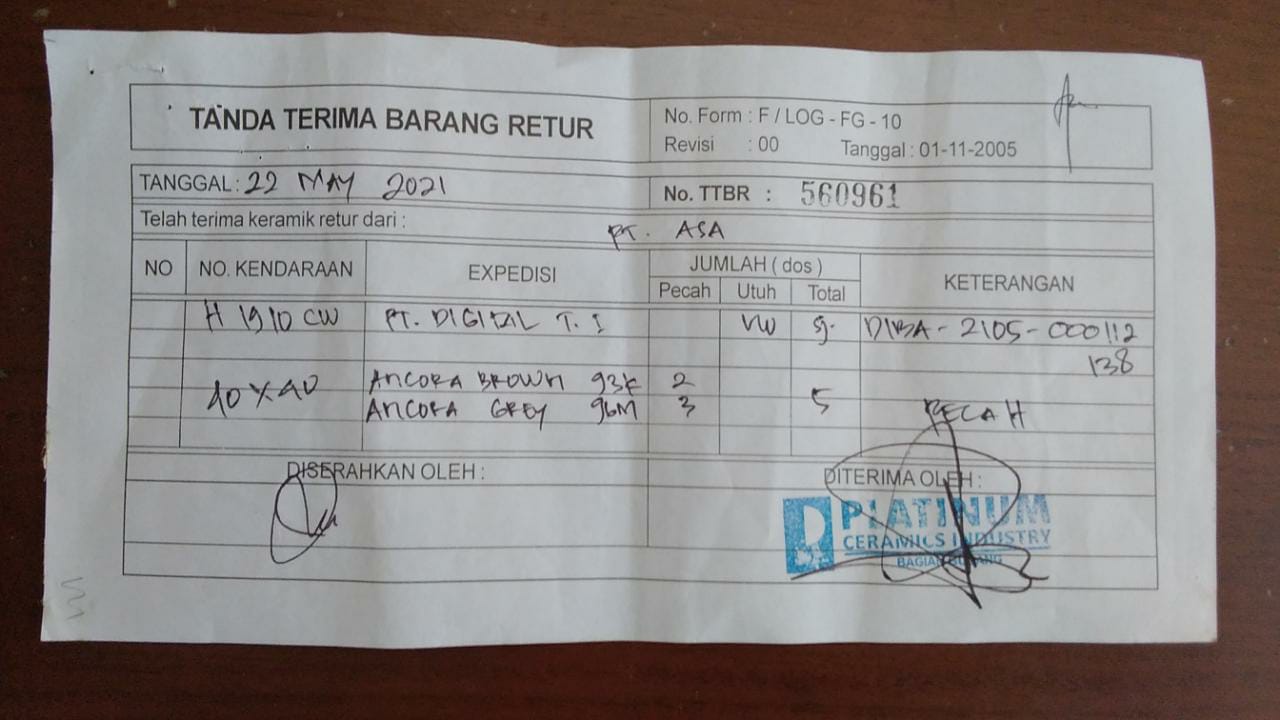 TANDA TERIMA BARANG RETUR
No. Form : F / LOG - FG - 10
Revisi : 00 Tanggal : 01-11-2005
TANGGAL : 22 MAY 2021
No. TTBR : 560961
Telah terima keramik retur dari : PT. ASA
NO NO. KENDARAAN EXPEDISI JUMLAH ( dos ) KETERANGAN
Pecah Utuh Total
H 1910 CW PT. DIGITAL T. I DIBA - 2105 - 000112
138
40 X 40 ANCORA BROWN 93K 2
ANCORA GREY 96M 3 5 PECAH
DISERAHKAN OLEH : DITERIMA OLEH :
PLATINUM
CERAMICS INDUSTRY
BAGIAN GUDANG